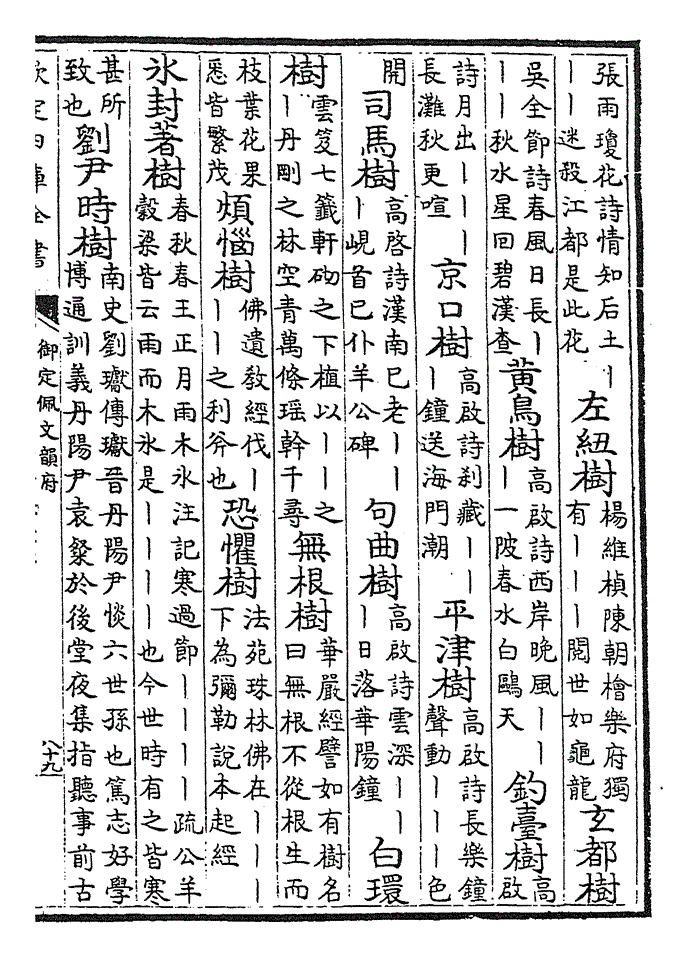 張雨瓊花詩情知后土｜｜｜迷殺江都是此花 左紐樹 楊維楨陳朝檜樂府獨有｜｜｜閱世如龜龍 玄都樹
吳全節詩春風日長｜｜｜秋水星回碧漢查 黃鳥樹 高啟詩西岸晚風｜｜｜一陂春水白鷗天 釣臺樹 高啟
詩月出｜｜｜長灘秋更喧 京口樹 高啟詩刹藏｜｜｜鐘送海門潮 平津樹 高啟詩長樂鐘聲動｜｜｜色
開 司馬樹 高啓詩漢南已老｜｜｜峴首已仆羊公碑 句曲樹 高啟詩雲深｜｜｜日落華陽鐘 白環
樹 雲笈七籤軒砌之下植以｜｜之｜丹剛之林空青萬條瑶幹千尋 無根樹 華嚴經譬如有樹名曰無根不從根生而
枝葉花果悉皆繁茂 煩惱樹 佛遺敎經伐｜｜｜之利斧也 恐懼樹 法苑珠林佛在｜｜｜下為彌勒說本起經
氷封著樹 春秋春王正月雨木氷注記寒過節｜｜｜｜疏公羊榖梁皆云雨而木氷是｜｜｜｜也今世時有之皆寒
甚所致也 劉尹時樹 南史劉瓛傳瓛晉丹陽尹惔六世孫也篤志好學博通訓義丹陽尹袁粲於後堂夜集指聽事前古
欽定四庫全書
御定佩文韻府
八十九